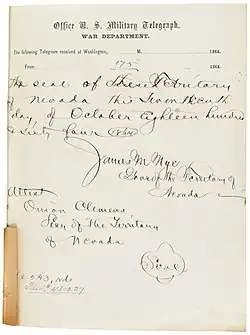 Office U. S. Military Telegraph,
WAR DEPARTMENT.
The following Telegram received at Washington, M. 1864.
From 175 1864.
the seal of this Territory
of Nevada this Seventeenth
day of October Eighteen hundred
& Sixty four
James W Nye
Governor of the Territory of
Nevada
Attest
Orion Clemens
Secy of the Territory
of Nevada
Seal